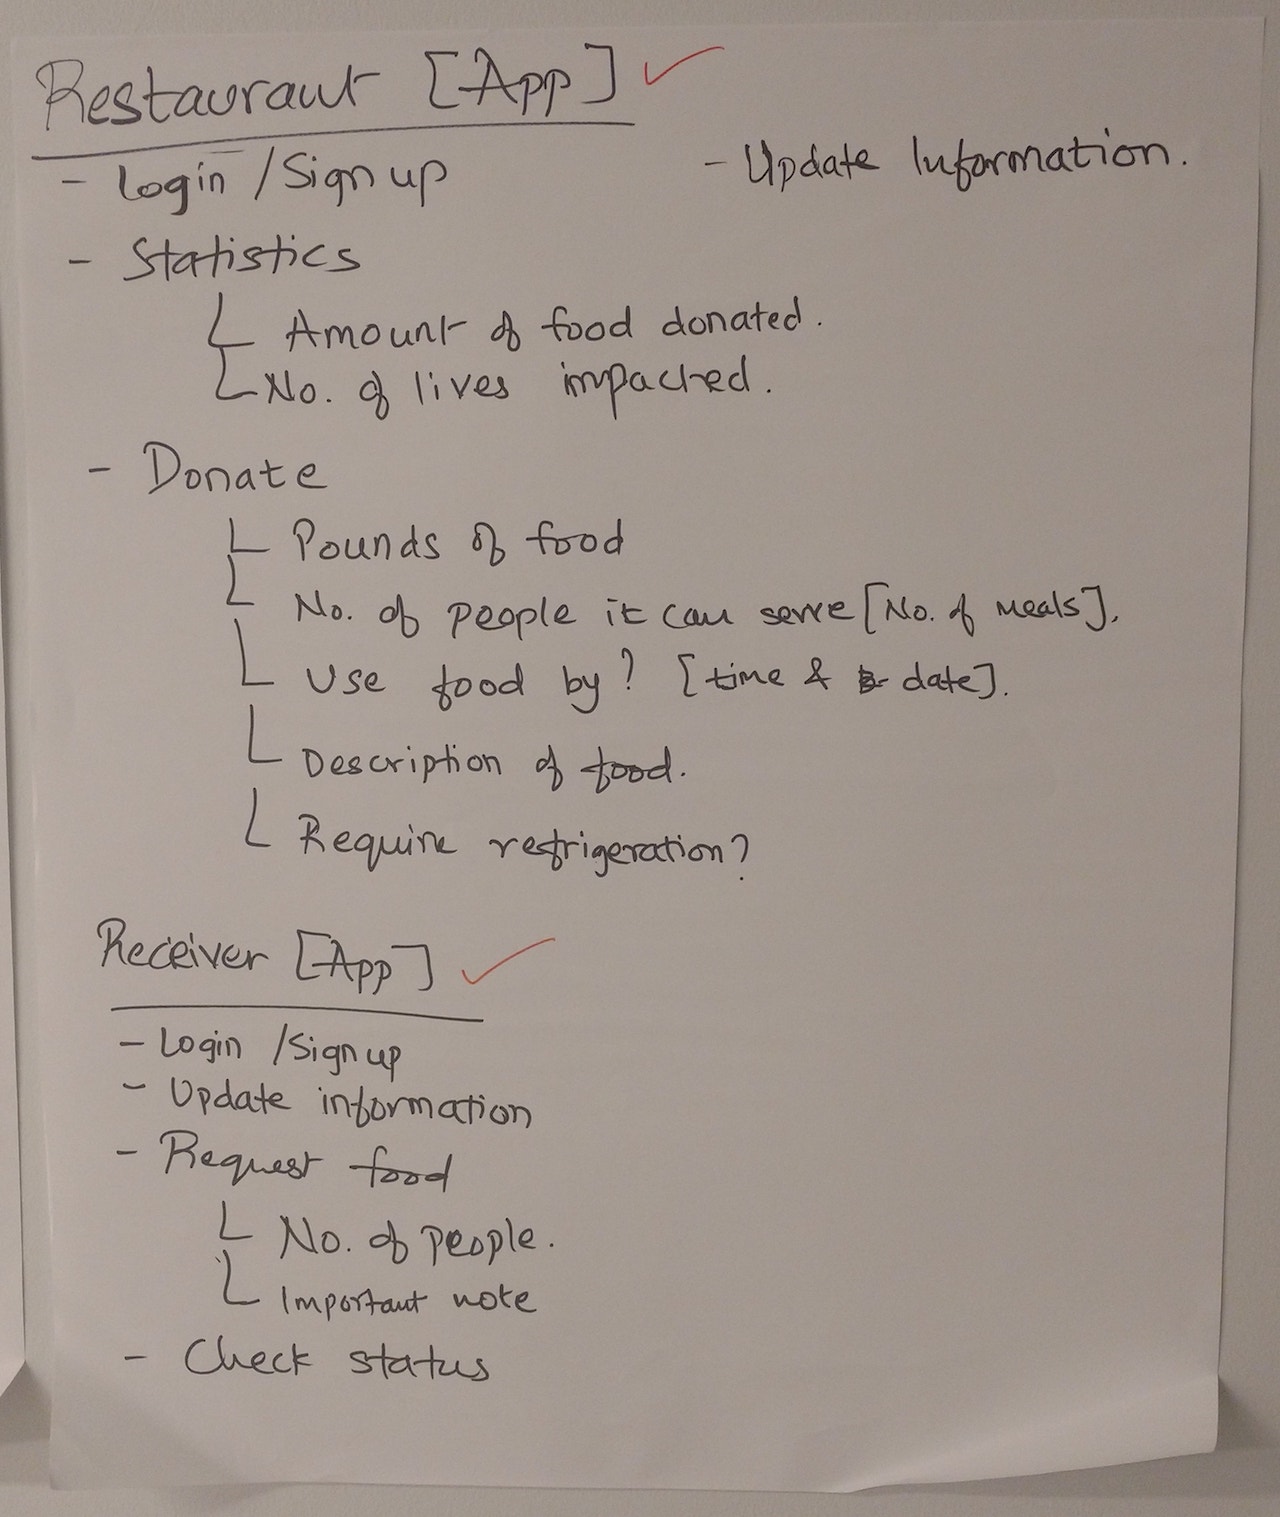 Restaurant [App] ✓
- Login /Sign up
- Update Information.
- Statistics
Amount of food donated.
No. of lives impacted.
- Donate
Pounds of food
No. of people it can serve [No. of meals].
Use food by? [time & date].
Description of food.
Require refrigeration?
Receiver [App] ✓
- Login /Sign up
- Update information
- Request food
No. of people.
Important note
- Check status